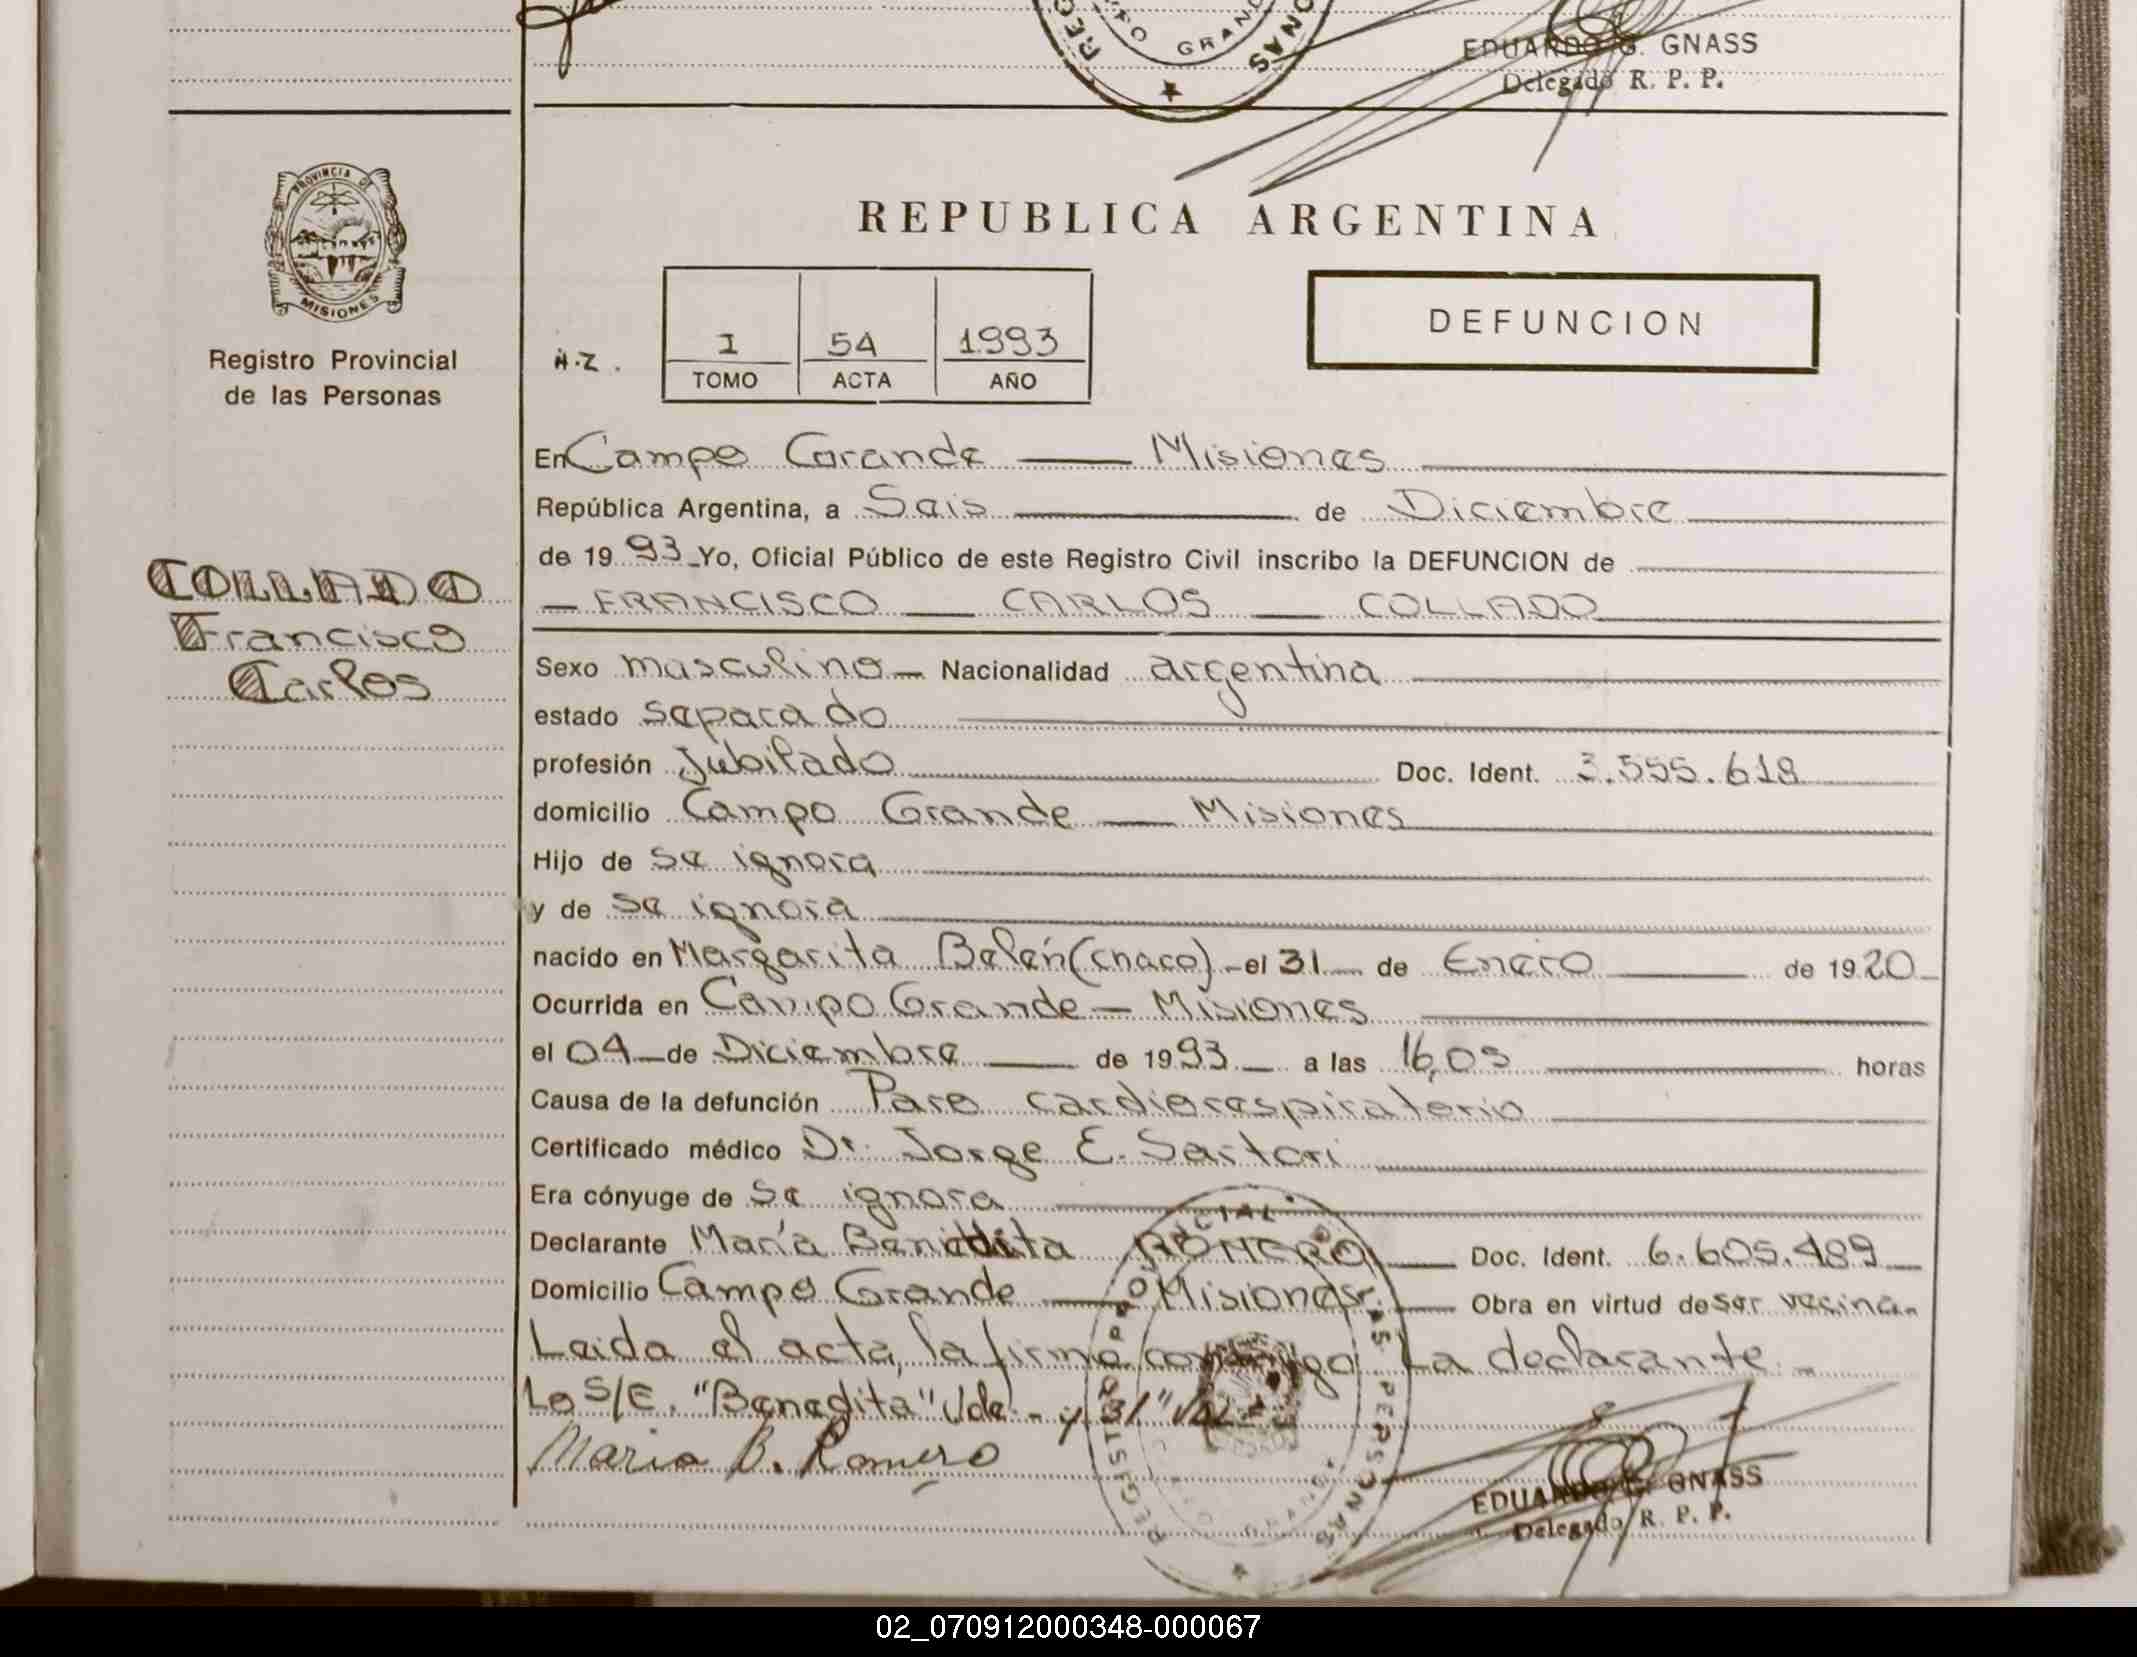 REG
TO GRAND
NAS
EDUARDO G. GNASS
Delegado R. P. P.
PROVINCIA DE
MISIONES
Registro Provincial
de las Personas
REPUBLICA ARGENTINA
H.Z.
I 54 1993
TOMO ACTA AÑO
DEFUNCION
En Campo Grande — Misiones
República Argentina, a Seis — de Diciembre
de 19 93 Yo, Oficial Público de este Registro Civil inscribo la DEFUNCION de
— FRANCISCO — CARLOS — COLLADO
COLLADO
Francisco
Carlos
Sexo masculino — Nacionalidad argentina
estado separado
profesión Jubilado Doc. Ident. 3.555.618
domicilio Campo Grande — Misiones
Hijo de se ignora
y de se ignora
nacido en Margarita Belén (Chaco) - el 31 de Enero — de 19 20
Ocurrida en Campo Grande — Misiones
el 04 — de Diciembre — de 19 93 a las 16,05 horas
Causa de la defunción Paro cardiorespiratorio
Certificado médico Dr. Jorge E. Sartori
Era cónyuge de Se ignora
Declarante María Benedita ROMERO — Doc. Ident. 6.605.489
Domicilio Campo Grande — Misiones — Obra en virtud de ser vecina.-
Leida el acta, la firma conmigo la declarante.-
Lo S/E. "Benedita" Vale.- y "31" Vale
Maria B. Romero
EDUARDO G. GNASS
Delegado R. P. P.
02_070912000348-000067